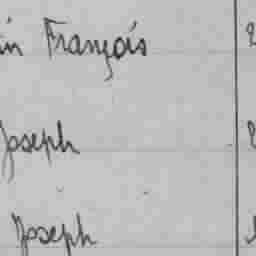 François
Joseph
Joseph